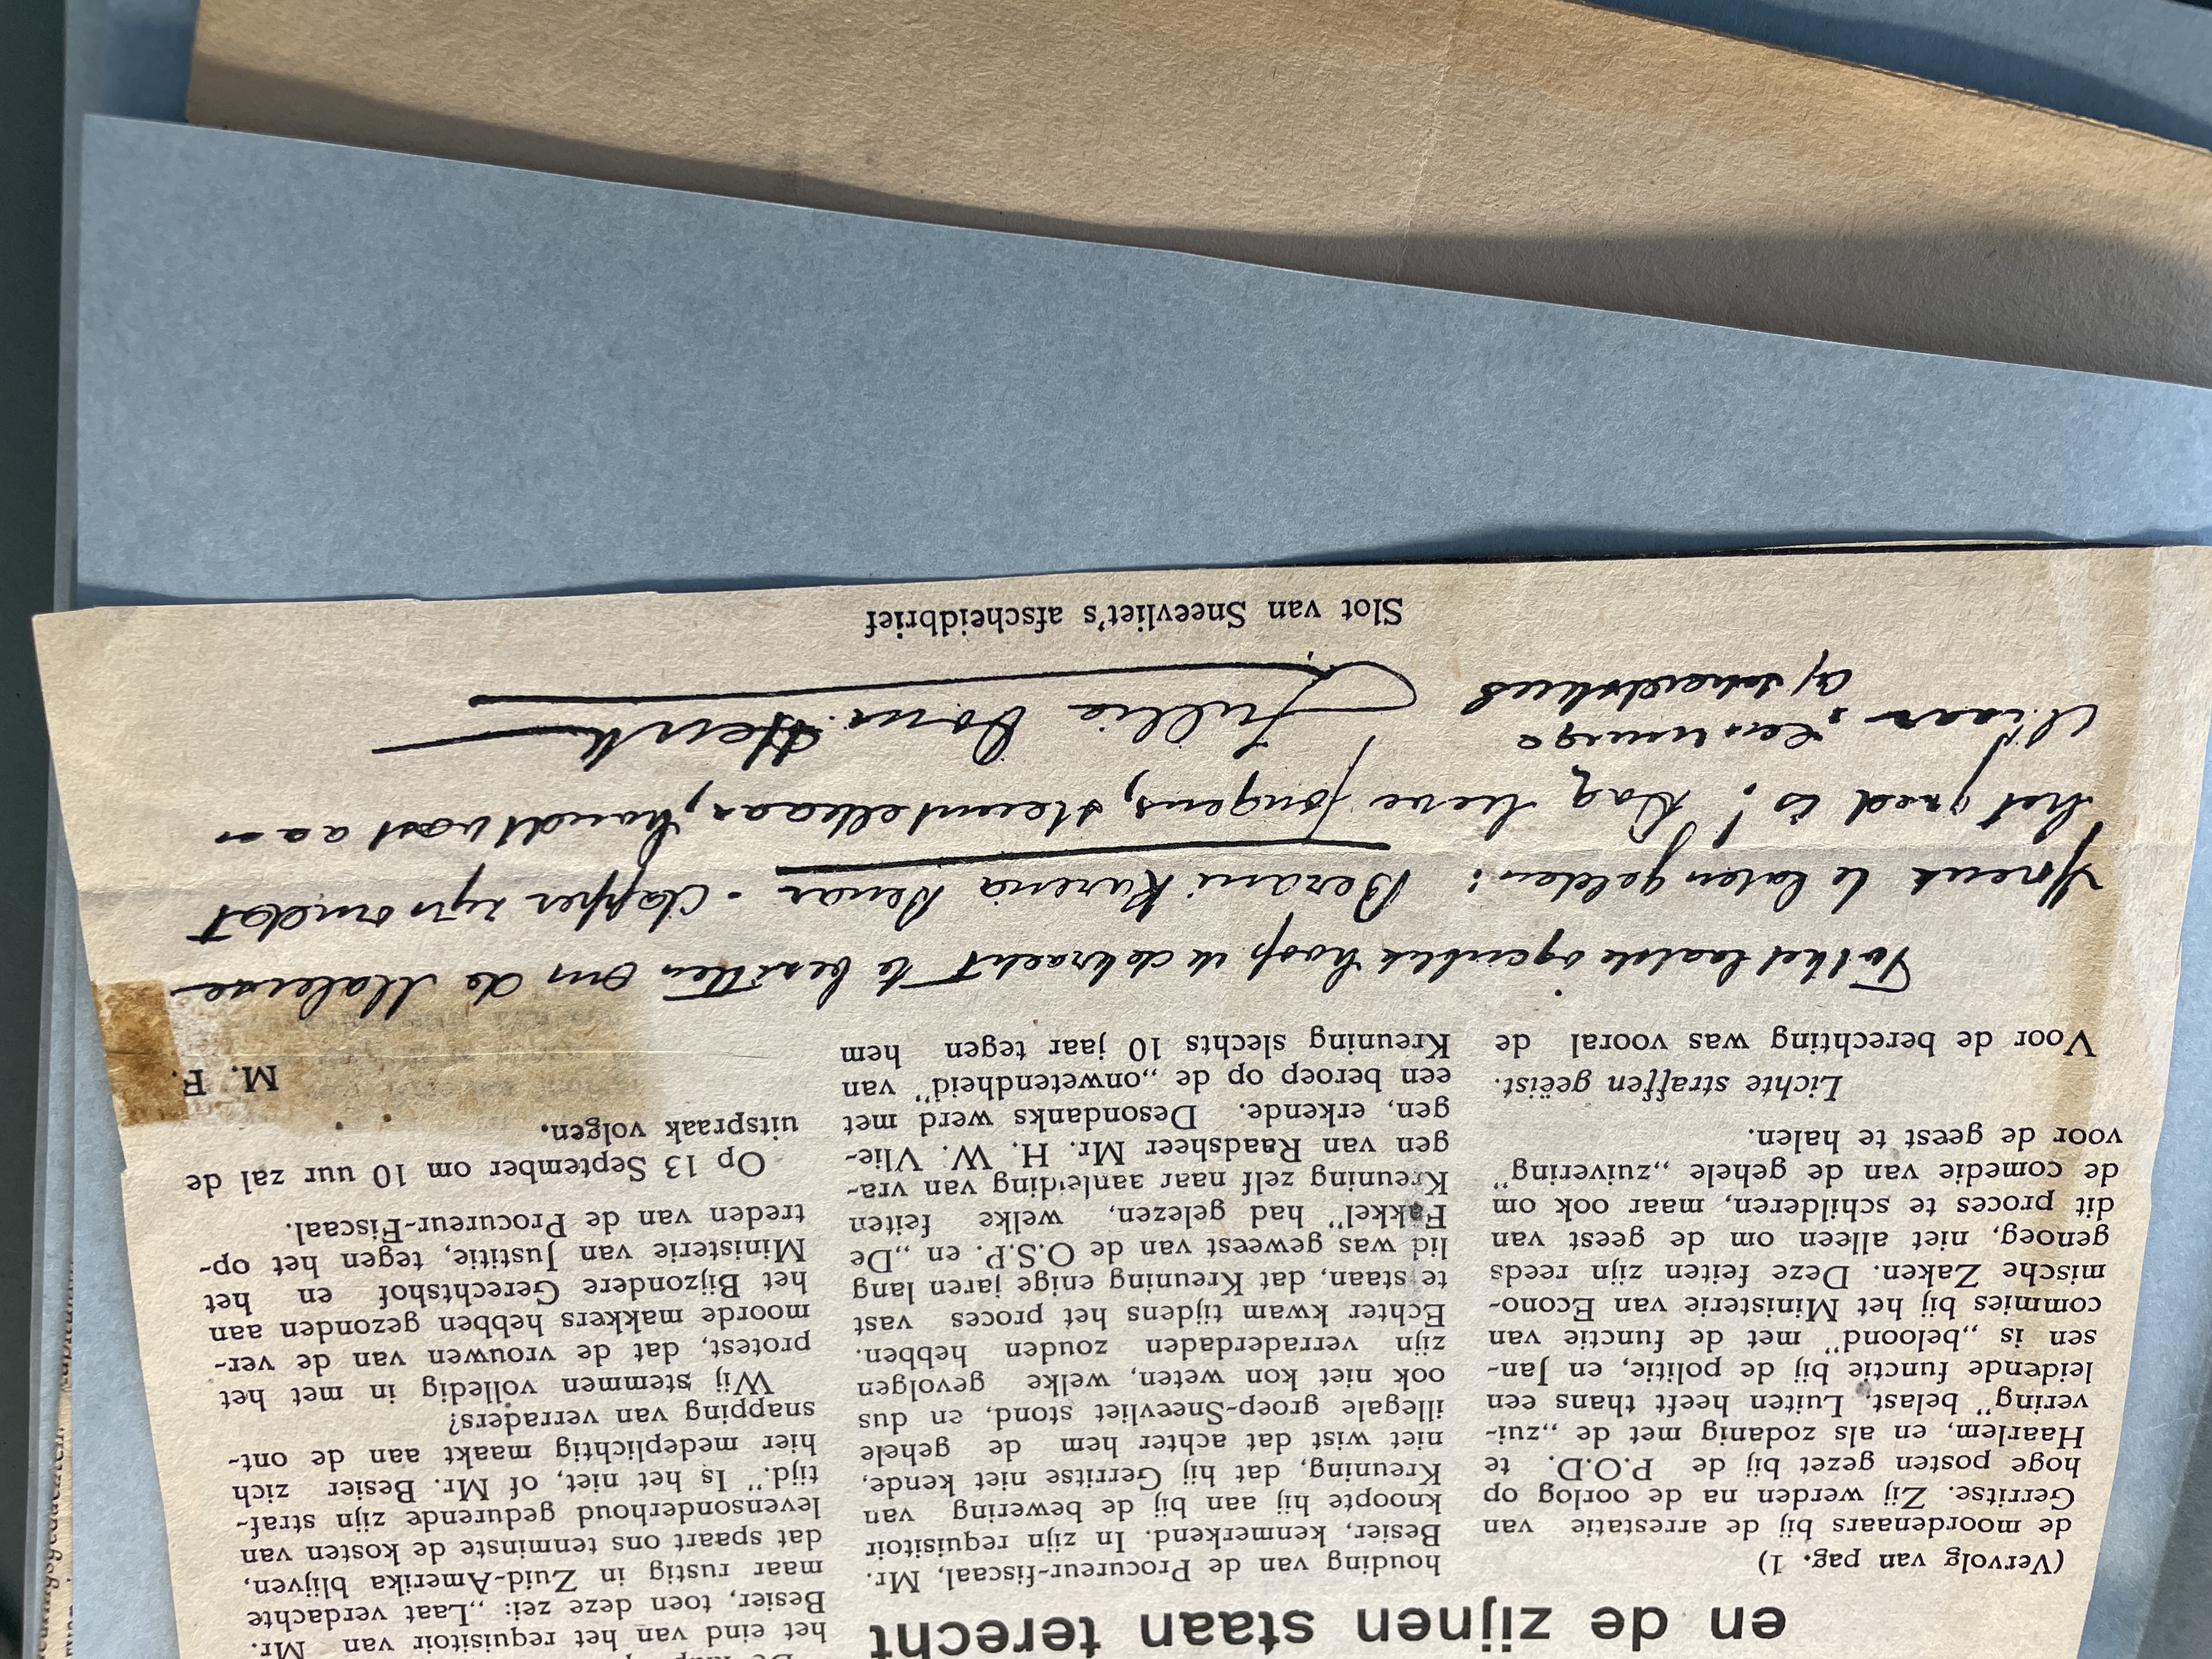 en de zijnen staan terecht
(Vervolg van pag. 1)
de moordenaars bij de arrestatie van
Gerritse. Zij werden na de oorlog op
hoge posten gezet bij de P.O.D. te
Haarlem, en als zodanig met de „zui-
vering” belast. Luiten heeft thans een
leidende functie bij de politie, en Jan-
sen is „beloond” met de functie van
commies bij het Ministerie van Econo-
mische Zaken. Deze feiten zijn reeds
genoeg, niet alleen om de geest van
dit proces te schilderen, maar ook om
de comedie van de gehele „zuivering”
voor de geest te halen.
Lichte straffen geëist.
Voor de berechting was vooral de
houding van de Procureur-fiscaal, Mr.
Besier, kenmerkend. In zijn requisitoir
knoopte hij aan bij de bewering van
Kreuning, dat hij Gerritse niet kende,
niet wist dat achter hem de gehele
illegale groep-Sneevliet stond, en dus
ook niet kon weten, welke gevolgen
zijn verraderdaden zouden hebben.
Echter kwam tijdens het proces vast
te staan, dat Kreuning enige jaren lang
lid was geweest van de O.S.P. en „De
Fakkel” had gelezen, welke feiten
Kreuning zelf naar aanleiding van vra-
gen van Raadsheer Mr. H. W. Vlie-
gen, erkende. Desondanks werd met
een beroep op de „onwetendheid” van
Kreuning slechts 10 jaar tegen hem
het eind van het requisitoir van Mr.
Besier, toen deze zei: „Laat verdachte
maar rustig in Zuid-Amerika blijven,
dat spaart ons tenminste de kosten van
levensonderhoud gedurende zijn straf-
tijd.” Is het niet, of Mr. Besier zich
hier medeplichtig maakt aan de ont-
snapping van verraders?
Wij stemmen volledig in met het
protest, dat de vrouwen van de ver-
moorde makkers hebben gezonden aan
het Bijzondere Gerechtshof en het
Ministerie van Justitie, tegen het op-
treden van de Procureur-Fiscaal.
Op 13 September om 10 uur zal de
uitspraak volgen.
M. F.
Tot het laatste ogenblik hoop ik de kracht te bezitten om de Maleise
spreuk te laten gelden: Berani Karena Benar - dapper zijn omdat
het goed is! Dag lieve jongens, steunt elkaar, houdt vast aan
elkaar. Eenmaal
afscheidskus
Jullie Oom Henk
Slot van Sneevliet's afscheidbrief